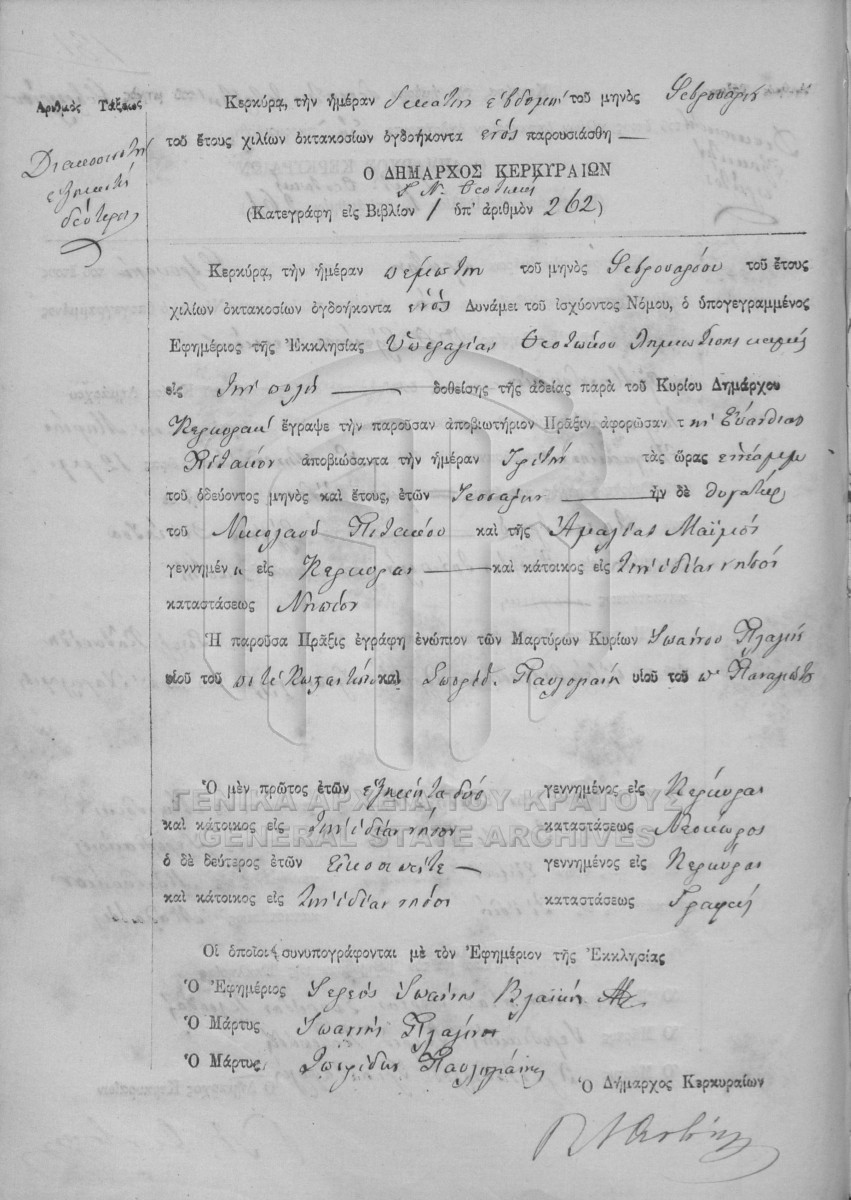 Ἀριθμὸς Τάξεως
Διακοσιοστὴ
ἑξηκοστὴ
δεύτερα
Κερκύρᾳ, τὴν ἡμέραν δεκάτην ἑβδόμην τοῦ μηνὸς Φεβρουαρίου
τοῦ ἔτους χιλίων ὀκτακοσίων ὀγδοήκοντα ἑνός παρουσιάσθη
Ο ΔΗΜΑΡΧΟΣ ΚΕΡΚΥΡΑΙΩΝ
Γ. Ν. Θεοτόκης
(Κατεγράφη εἰς Βιβλίον 1 ὑπ' ἀριθμὸν 262)
Κερκύρᾳ, τὴν ἡμέραν πέμπτην τοῦ μηνὸς Φεβρουαρίου τοῦ ἔτους
χιλίων ὀκτακοσίων ὀγδοήκοντα ἑνός Δυνάμει τοῦ ἰσχύοντος Νόμου, ὁ ὑπογεγραμμένος
Ἐφημέριος τῆς Ἐκκλησίας Ὑπεραγίας Θεοτόκου
εἰς τὴν πόλιν δοθείσης τῆς ἀδείας παρὰ τοῦ Κυρίου Δημάρχου
ἔγραψε τὴν παροῦσαν ἀποβιωτήριον Πρᾶξιν ἀφορῶσαν τ ὴν Εὐανθίαν
ἀποβιώσαντα τὴν ἡμέραν τρίτην τὰς ὥρας
τοῦ ὁδεύοντος μηνὸς καὶ ἔτους, ἐτῶν τεσσάρων ἦν δὲ θυγάτηρ
τοῦ Νικολάου καὶ τῆς Ἀμαλίας
γεννημέν η εἰς Κέρκυραν καὶ κάτοικος εἰς τὴν ἰδίαν νῆσον
καταστάσεως Νήπιον
Ἡ παροῦσα Πρᾶξις ἐγράφη ἐνώπιον τῶν Μαρτύρων Κυρίων Ἰωάννου
υἱοῦ τοῦ ποτὲ Κωσταντίνου καὶ Σπυρίδ. υἱοῦ τοῦ π.
Ὁ μὲν πρῶτος ἐτῶν ἑξήκοντα δύο γεννημένος εἰς Κέρκυραν
καὶ κάτοικος εἰς τὴν ἰδίαν νῆσον καταστάσεως Νεοκώρος
ὁ δὲ δεύτερος ἐτῶν εἴκοσι πέντε γεννημένος εἰς Κέρκυραν
καὶ κάτοικος εἰς τὴν ἰδίαν νῆσον καταστάσεως Γραφεύς
Οἱ ὁποῖοι συνυπογράφονται μὲ τὸν Ἐφημέριον τῆς Ἐκκλησίας
Ὁ Ἐφημέριος Ἱερεὺς Ἰωάννης
Ὁ Μάρτυς Ἰωάννης
Ὁ Μάρτυς Σπυρίδων
Ὁ Δήμαρχος Κερκυραίων
ΓΕΝΙΚΑ ΑΡΧΕΙΑ ΤΟΥ ΚΡΑΤΟΥΣ
GENERAL STATE ARCHIVES